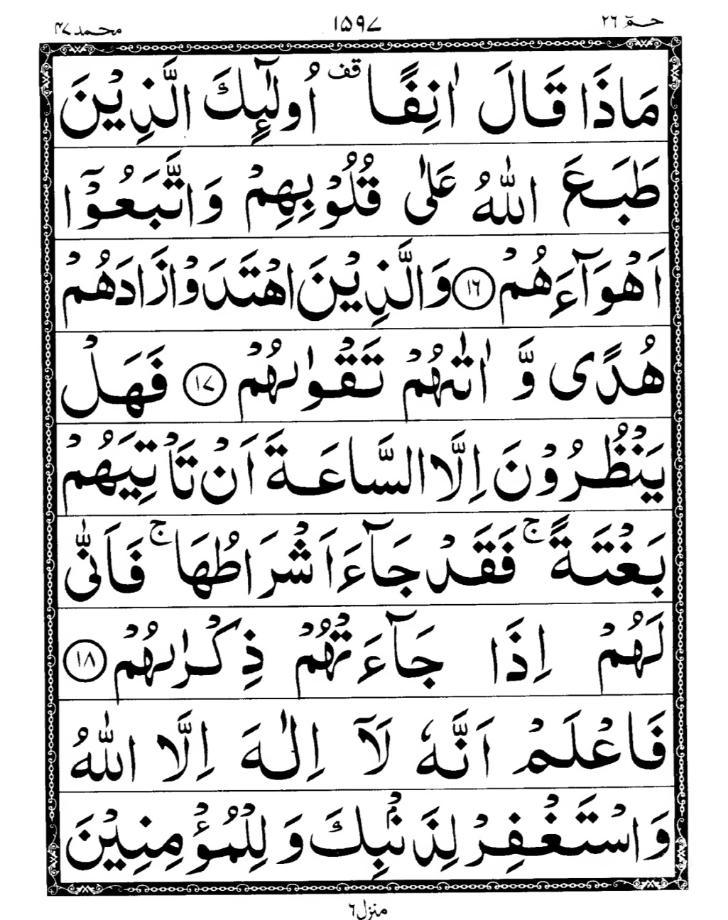 حٰمٓ ۲۶ ۱۵۹۷ محمد ۴۷
مَاذَا قَالَ اٰنِفًا ۫ قف اُولٰٓئِكَ الَّذِيْنَ
طَبَعَ اللّٰهُ عَلٰى قُلُوْبِهِمْ وَاتَّبَعُوْٓا
اَهْوَآءَهُمْ ⑯ وَالَّذِيْنَ اهْتَدَوْا زَادَهُمْ
هُدًى وَّ اٰتٰىهُمْ تَقْوٰىهُمْ ⑰ فَهَلْ
يَنْظُرُوْنَ اِلَّا السَّاعَةَ اَنْ تَاْتِيَهُمْ
بَغْتَةً ۚ فَقَدْ جَآءَ اَشْرَاطُهَا ۚ فَاَنّٰى
لَهُمْ اِذَا جَآءَتْهُمْ ذِكْرٰىهُمْ ⑱
فَاعْلَمْ اَنَّهٗ لَآ اِلٰهَ اِلَّا اللّٰهُ
وَاسْتَغْفِرْ لِذَنْۢبِكَ وَ لِلْمُؤْمِنِيْنَ
منزل ۶